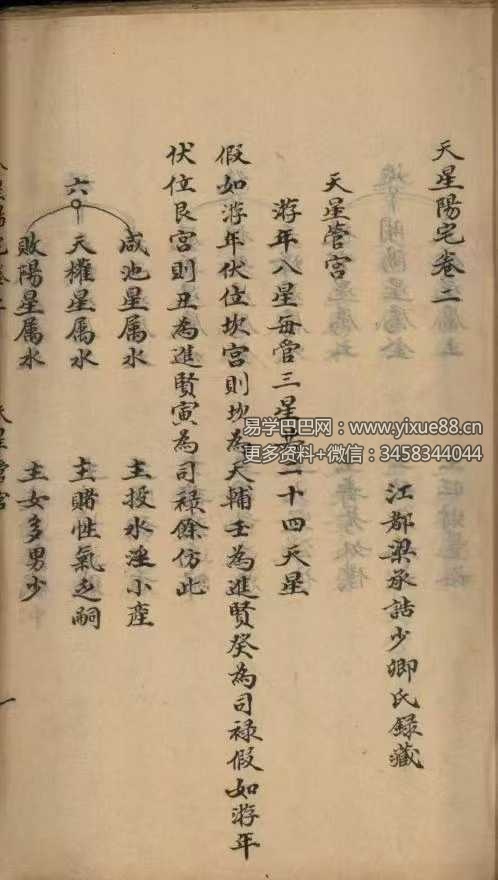 天星陽宅卷二
江都梁承誥少卿氏錄藏
天星管宮
游年八星每管三星共二十四天星
假如游年伏位坎宮則坎為天輔壬為進賢癸為司祿假如游年
伏位艮宮則丑為進賢寅為司祿餘仿此
六
咸池星属水 主投水淫小産
天權星属水 主賭性氣乏嗣
敗陽星属水 主女多男少
天星管宮
一
易学巴巴网：www.yixue88.cn
更多资料+微信：3458344044